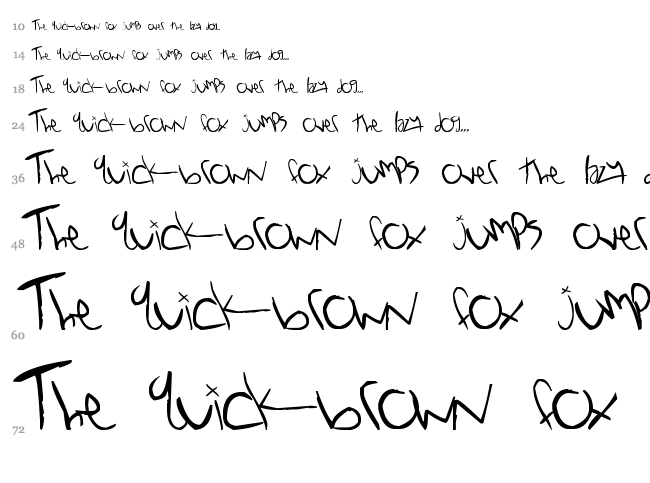 10 The quick brown fox jumps over the lazy dog...
14 The quick brown fox jumps over the lazy dog...
18 The quick brown fox jumps over the lazy dog...
24 The quick brown fox jumps over the lazy dog...
36 The quick brown fox jumps over the lazy d
48 The quick brown fox jumps over
60 The quick brown fox jump
72 The quick brown fox